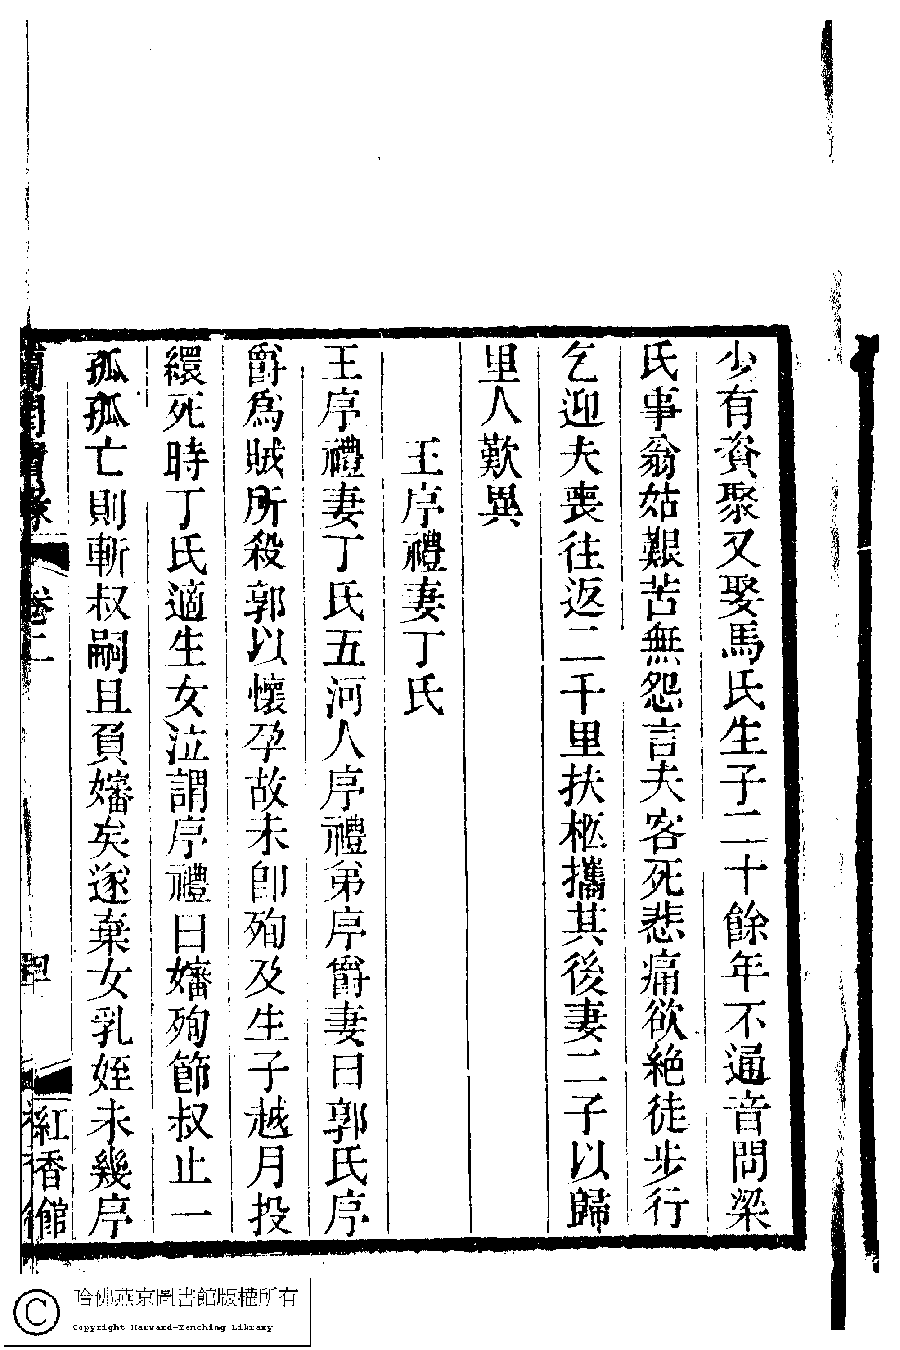 少有資聚又娶馬氏生子二十餘年不通音問梁
氏事翁姑艱苦無怨言夫客死悲痛欲絶徒步行
乞迎夫喪往返二千里扶柩攜其後妻二子以歸
里人歎異
王序禮妻丁氏
王序禮妻丁氏五河人序禮弟序爵妻曰郭氏序
爵爲賊所殺郭以懷孕故未即殉及生子越月投
繯死時丁氏適生女泣謂序禮曰嬸殉節叔止一
孤孤亡則斬叔嗣且負嬸矣遂棄女乳姪未幾序
蘭閨寶錄 卷二 紅香館
哈佛燕京圖書館版權所有
Copyright Harvard-Yenching Library